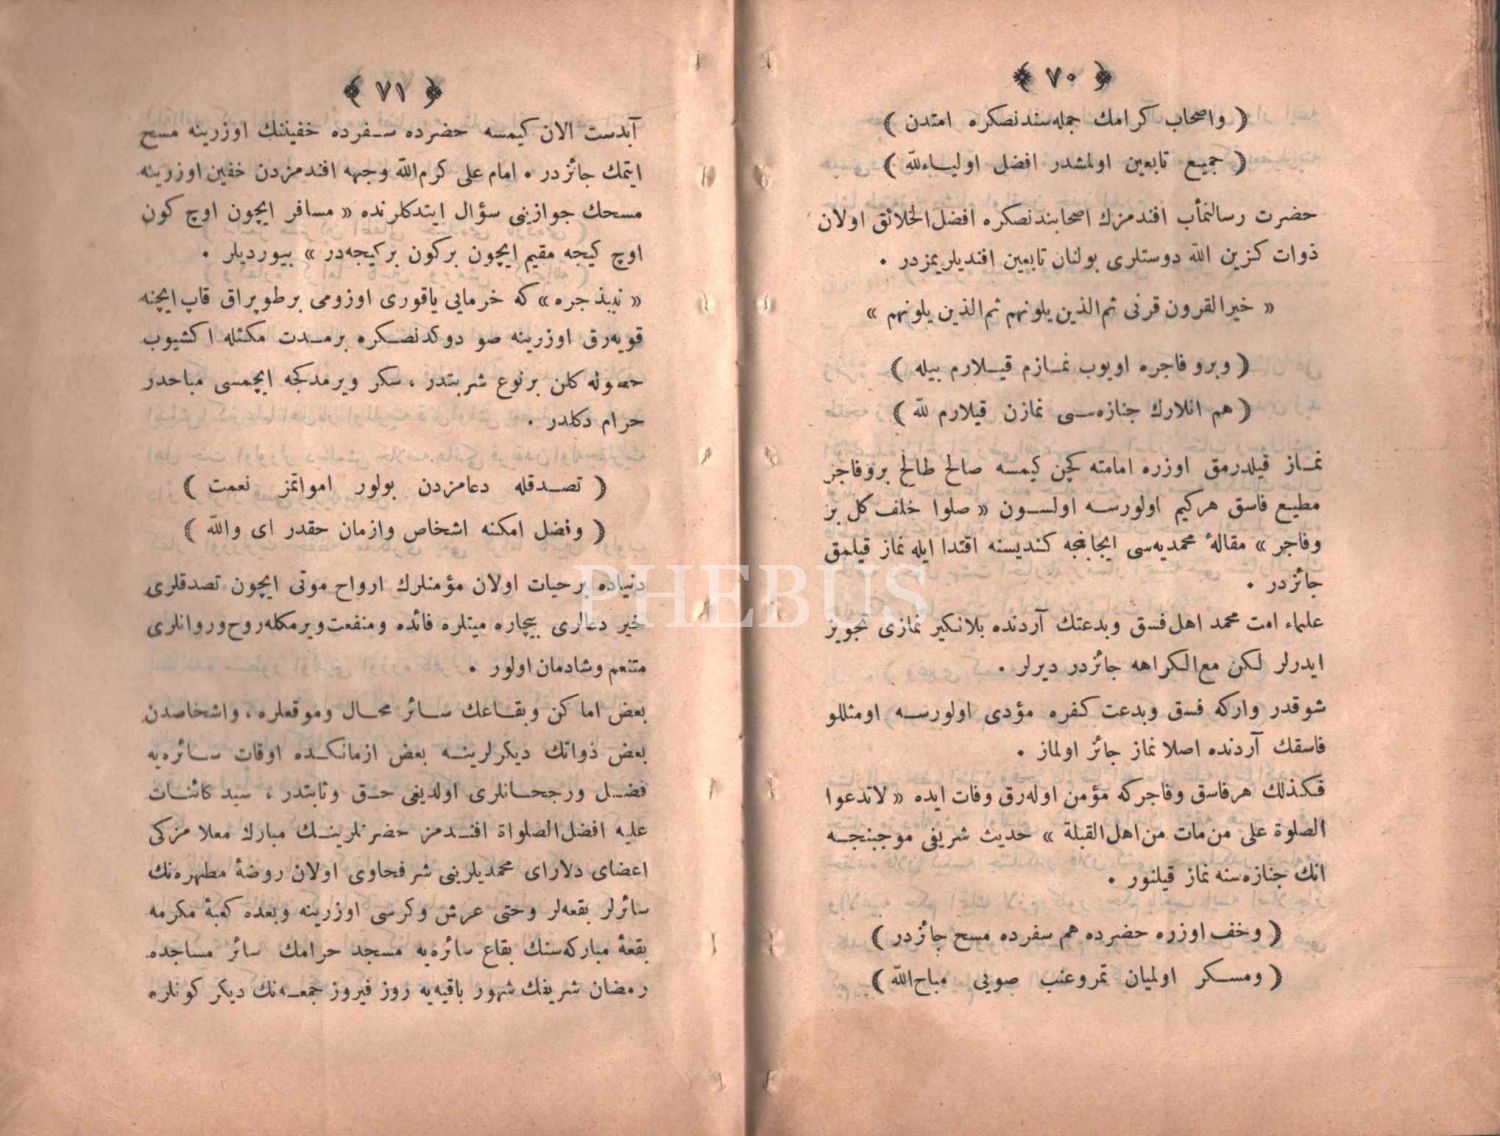 ﴿ ٧٠ ﴾
( واصحاب كرامك جمله‌سندنصكره امتدن )
( جميع تابعين اولمشدر افضل اولياءلله )
حضرت رسالتمأب افندمزك اصحابندنصكره افضل‌الخلائق اولان
ذوات كزين الله دوستلرى بولنان تابعين افنديلريمزدر .
« خيرالقرون قرنى ثم‌الذين يلونهم ثم‌الذين يلونهم »
( وبرو فاجره اويوب نمازم قيلارم بيله )
( هم انلارك جنازه‌سى نمازن قيلارم لله )
نماز قيلدرمق اوزره امامته كچن كيمسه صالح طالح بروفاجر
مطيع فاسق هركيم اولورسه اولسون « صلوا خلف كل بر
وفاجر » مقالهٔ محمديه‌سى ايجابنجه كنديسنه اقتدا ايله نماز قيلمق
جائزدر .
علماء امت محمد اهل‌فسق وبدعتك آردنده بلانكير نمازى تجويز
ايدرلر لكن مع‌الكراهه جائزدر ديرلر .
شوقدر واركه فسق وبدعت كفره مؤدى اولورسه اومثللو
فاسقك آردنده اصلا نماز جائز اولماز .
فكذلك هرفاسق وفاجركه مؤمن اوله‌رق وفات ايده « لاتدعوا
الصلوة على من‌مات من‌اهل‌القبلة » حديث شريفى موجبنجه
انك جنازه‌سنه نماز قيلنور .
( وخف اوزره حضرده هم سفرده مسح جائزدر )
( ومسكر اولميان تمروعنب صويى مباح‌الله )
﴿ ٧١ ﴾
آبدست الان كيمسه حضرده سفرده خفيننك اوزرينه مسح
ايتمك جائزدر . امام على كرم‌الله وجهه افندمزدن خفين اوزرينه
مسحك جوازينى سؤال ايتدكلرنده « مسافر ايچون اوچ كون
اوچ كيجه مقيم ايچون بركون بركيجه‌در » بيورديلر .
« نبيذ جره » كه خرمايى ياقورى اوزومى برطوپراق قاب‌ايچنه
قويه‌رق اوزرينه صو دوكدنصكره برمدت مكثله اكشيوب
حصوله كلن برنوع شربتدر ، سكر ويرمدكجه ايچمسى مباحدر
حرام دكلدر .
( تصدقله دعامزدن بولور امواتمز نعمت )
( وفضل امكنه اشخاص وازمان حقدر اى والله )
دنياده برحيات اولان مؤمنلرك ارواح موتى ايچون تصدقلرى
خير دعالرى بيچاره ميتلره فائده ومنفعت‌ويرمكله‌روح‌وروانلرى
متنعم وشادمان اولور .
بعض اماكن وبقاعك سائر محال وموقعلره ، واشخاصدن
بعض ذواتك ديكرلرينه بعض ازمانكده اوقات سائره‌يه
فضل ورجحانلرى اولديغى حق وثابتدر ، سيد كائنات
عليه افضل‌الصلواة افندمز حضرتلرينك مبارك معلا مزكى
اعضاى دلاراى محمديلرينى شرفحاوى اولان روضهٔ مطهره‌نك
سائرلر بقعه‌لر وحتى عرش وكرسى اوزرينه وبعده كعبهٔ مكرمه
بقعهٔ مباركه‌سنك بقاع سائره‌يه مسجد حرامك سائر مساجده
رمضان شريفك شهور باقيه‌يه روز فيروز جمعه‌نك ديكر كونلره
PHEBUS